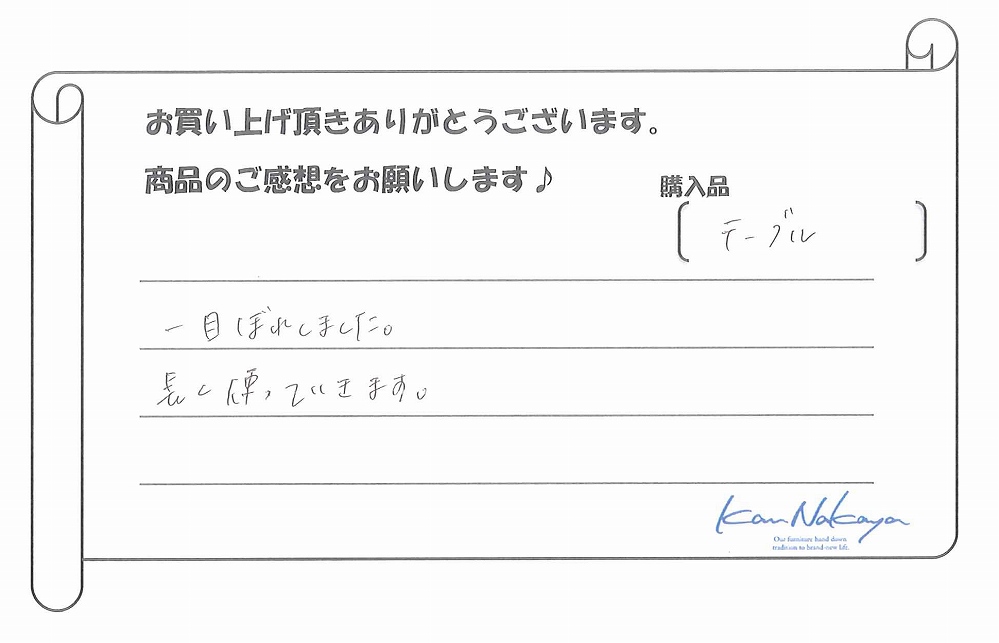 お買い上げ頂きありがとうございます。
商品のご感想をお願いします♪
購入品
テーブル
一目ぼれしました。
長く使っていきます。
Kan Nakaya
Our furniture hand down
tradition to brand-new life.